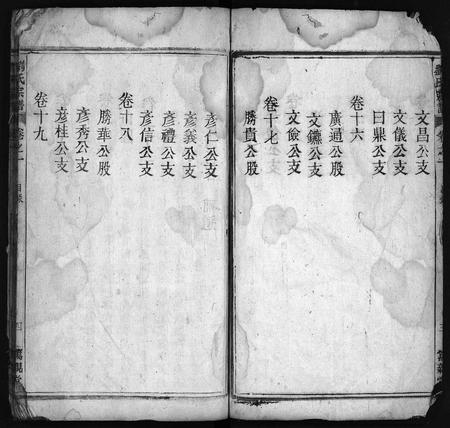 文昌公支
文儀公支
曰鼎公支
卷十六
廣通公股
文鑣公支
文儉公支
卷十七
勝貴公股
彥仁公支
彥義公支
彥禮公支
彥信公支
卷十八
勝華公股
彥秀公支
彥桂公支
卷十九
劉氏宗譜
卷之一
目錄
三